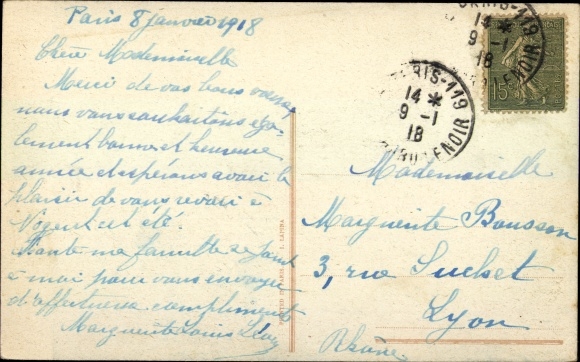 Paris 8 janvier 1918
Chère Mademoiselle
Merci de vos bons voeux,
nous vous souhaitons éga-
lement bonne et heureuse
année et espérons avoir le
plaisir de vous revoir à
Nogent cet été.
Toute ma famille se joint
à moi pour vous envoyer
d'affectueux compliments
Marguerite Louis Lévy
PARIS-119
14 *
9 -1
18
LENOIR
PARIS-119
14 *
9 -1
18
LENOIR
15
Mademoiselle
Marguerite
3, rue Suchet
Lyon
Rhône